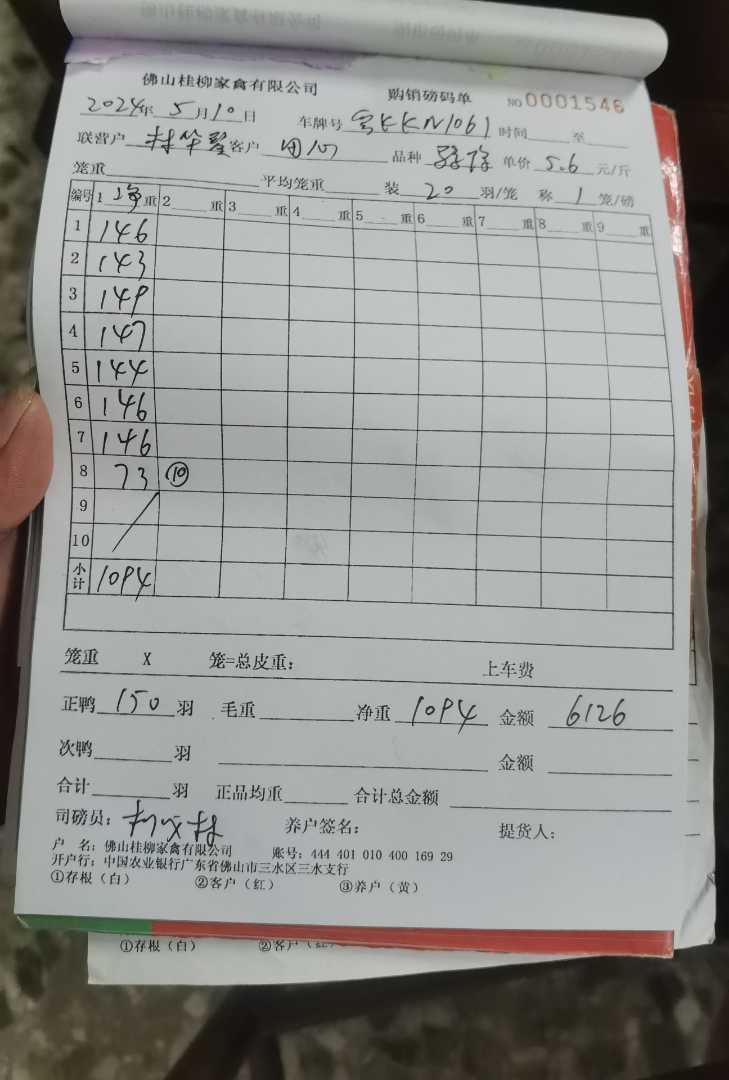 佛山桂柳家禽有限公司 购销磅码单 NO 0001546
2024年 5月10日 车牌号 KKN1061 时间 至
联营户 林华 客户 品种 单价 5.6 元/斤
笼重 平均笼重 装 20 羽/笼 称 1 笼/磅
编号 1 净 重 2 重 3 重 4 重 5 重 6 重 7 重 8 重 9 重
1 146
2 143
3 149
4 147
5 144
6 146
7 146
8 73 ⑩
9
10
小计 1094
笼重 X 笼=总皮重: 上车费
正鸭 150 羽 毛重 净重 1094 金额 6126
次鸭 羽 金额
合计 羽 正品均重 合计总金额
司磅员: 养户签名: 提货人:
户 名: 佛山桂柳家禽有限公司 账号: 444 401 010 400 169 29
开户行: 中国农业银行广东省佛山市三水区三水支行
①存根(白) ②客户(红) ③养户(黄)
①存根(白) ②客户